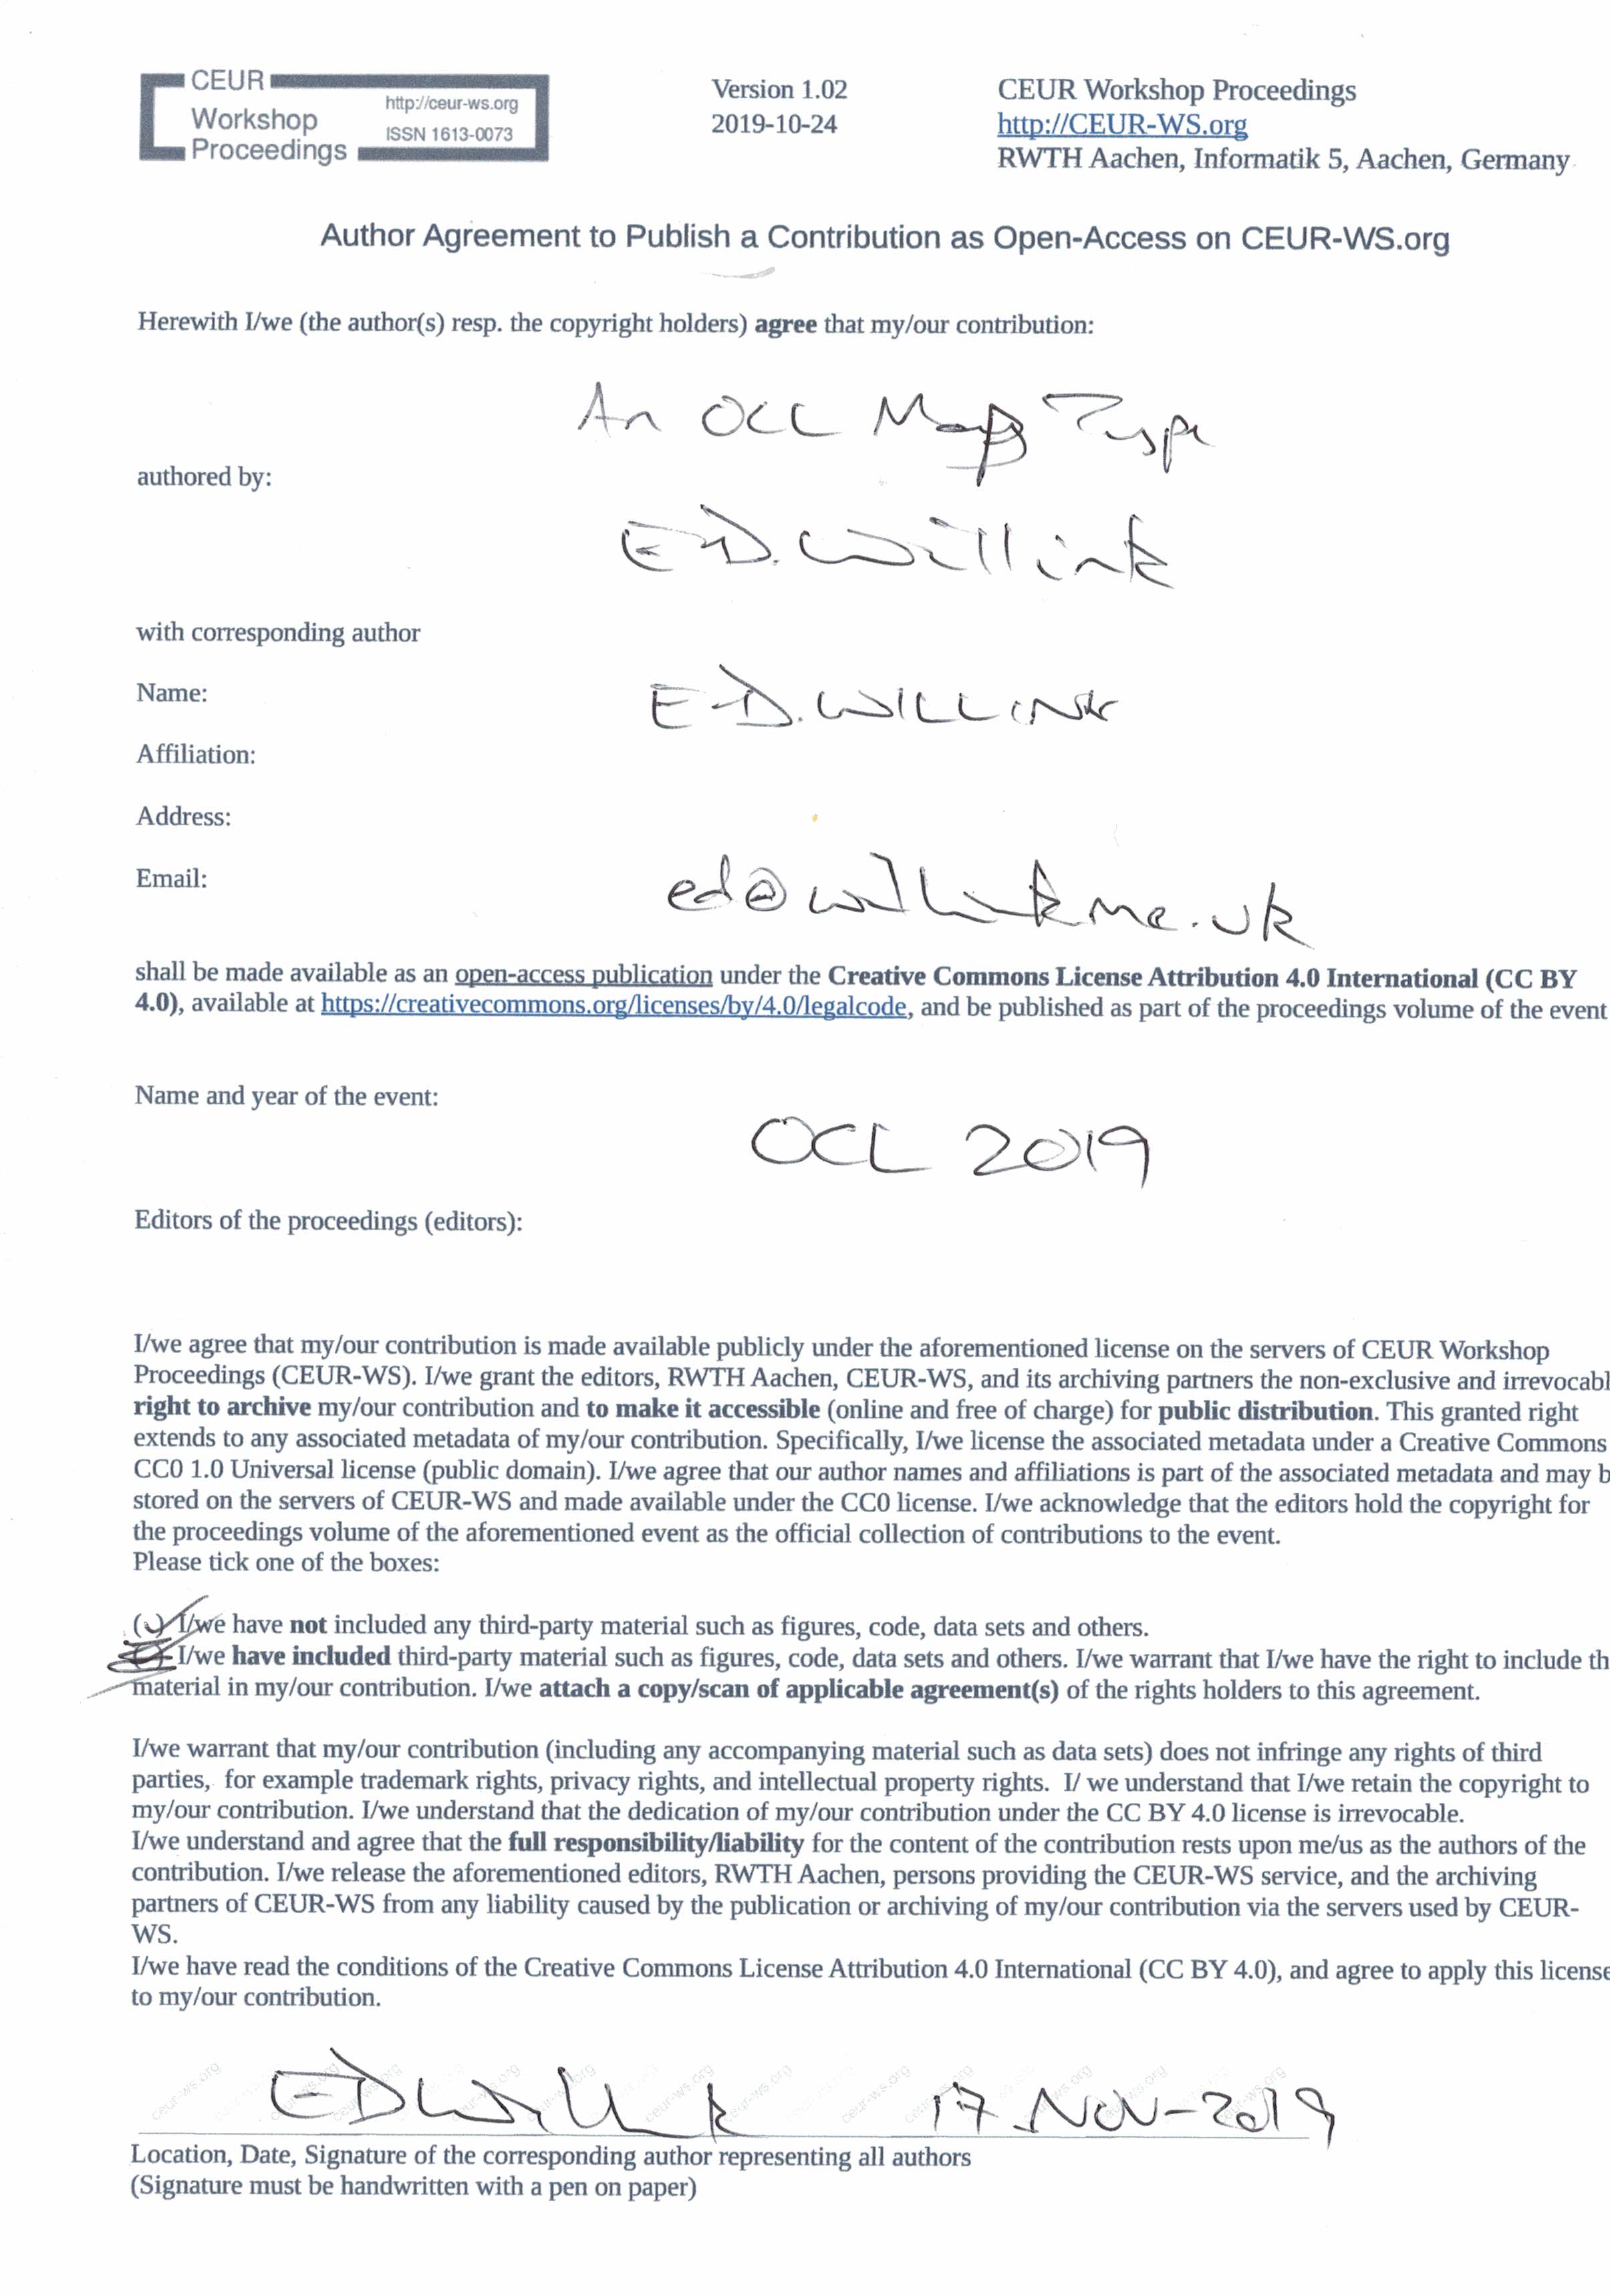 CEUR
Workshop
Proceedings
http://ceur-ws.org
ISSN 1613-0073
Version 1.02
2019-10-24
CEUR Workshop Proceedings
http://CEUR-WS.org
RWTH Aachen, Informatik 5, Aachen, Germany
Author Agreement to Publish a Contribution as Open-Access on CEUR-WS.org
Herewith I/we (the author(s) resp. the copyright holders) agree that my/our contribution:
An OCL Map Type
authored by:
E.D.Willink
with corresponding author
Name: E.D.WILLINK
Affiliation:
Address:
Email: ed@willink.me.uk
shall be made available as an open-access publication under the Creative Commons License Attribution 4.0 International (CC BY
4.0), available at https://creativecommons.org/licenses/by/4.0/legalcode, and be published as part of the proceedings volume of the event
Name and year of the event:
OCL 2019
Editors of the proceedings (editors):
I/we agree that my/our contribution is made available publicly under the aforementioned license on the servers of CEUR Workshop
Proceedings (CEUR-WS). I/we grant the editors, RWTH Aachen, CEUR-WS, and its archiving partners the non-exclusive and irrevocabl
right to archive my/our contribution and to make it accessible (online and free of charge) for public distribution. This granted right
extends to any associated metadata of my/our contribution. Specifically, I/we license the associated metadata under a Creative Commons
CC0 1.0 Universal license (public domain). I/we agree that our author names and affiliations is part of the associated metadata and may b
stored on the servers of CEUR-WS and made available under the CC0 license. I/we acknowledge that the editors hold the copyright for
the proceedings volume of the aforementioned event as the official collection of contributions to the event.
Please tick one of the boxes:
( ) I/we have not included any third-party material such as figures, code, data sets and others.
I/we have included third-party material such as figures, code, data sets and others. I/we warrant that I/we have the right to include th
material in my/our contribution. I/we attach a copy/scan of applicable agreement(s) of the rights holders to this agreement.
I/we warrant that my/our contribution (including any accompanying material such as data sets) does not infringe any rights of third
parties, for example trademark rights, privacy rights, and intellectual property rights. I/ we understand that I/we retain the copyright to
my/our contribution. I/we understand that the dedication of my/our contribution under the CC BY 4.0 license is irrevocable.
I/we understand and agree that the full responsibility/liability for the content of the contribution rests upon me/us as the authors of the
contribution. I/we release the aforementioned editors, RWTH Aachen, persons providing the CEUR-WS service, and the archiving
partners of CEUR-WS from any liability caused by the publication or archiving of my/our contribution via the servers used by CEUR-
WS.
I/we have read the conditions of the Creative Commons License Attribution 4.0 International (CC BY 4.0), and agree to apply this license
to my/our contribution.
EDWillink 17-Nov-2019
Location, Date, Signature of the corresponding author representing all authors
(Signature must be handwritten with a pen on paper)